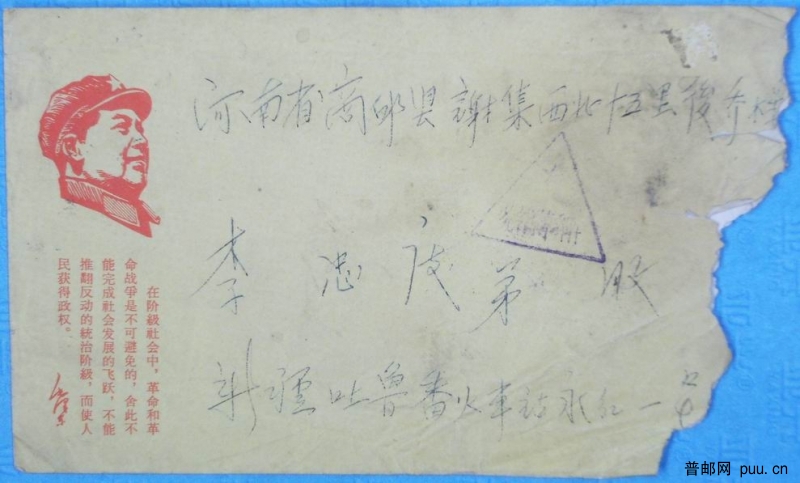 河南省商邱县謝集西北十五里後乔
李忠 弟 收
新疆吐鲁番火車站永红一
在阶級社会中，革命和革
命战爭是不可避免的，舍此不
能完成社会发展的飞跃，不能
推翻反动的統治阶級，而使人
民获得政权。
普邮网 puu.cn